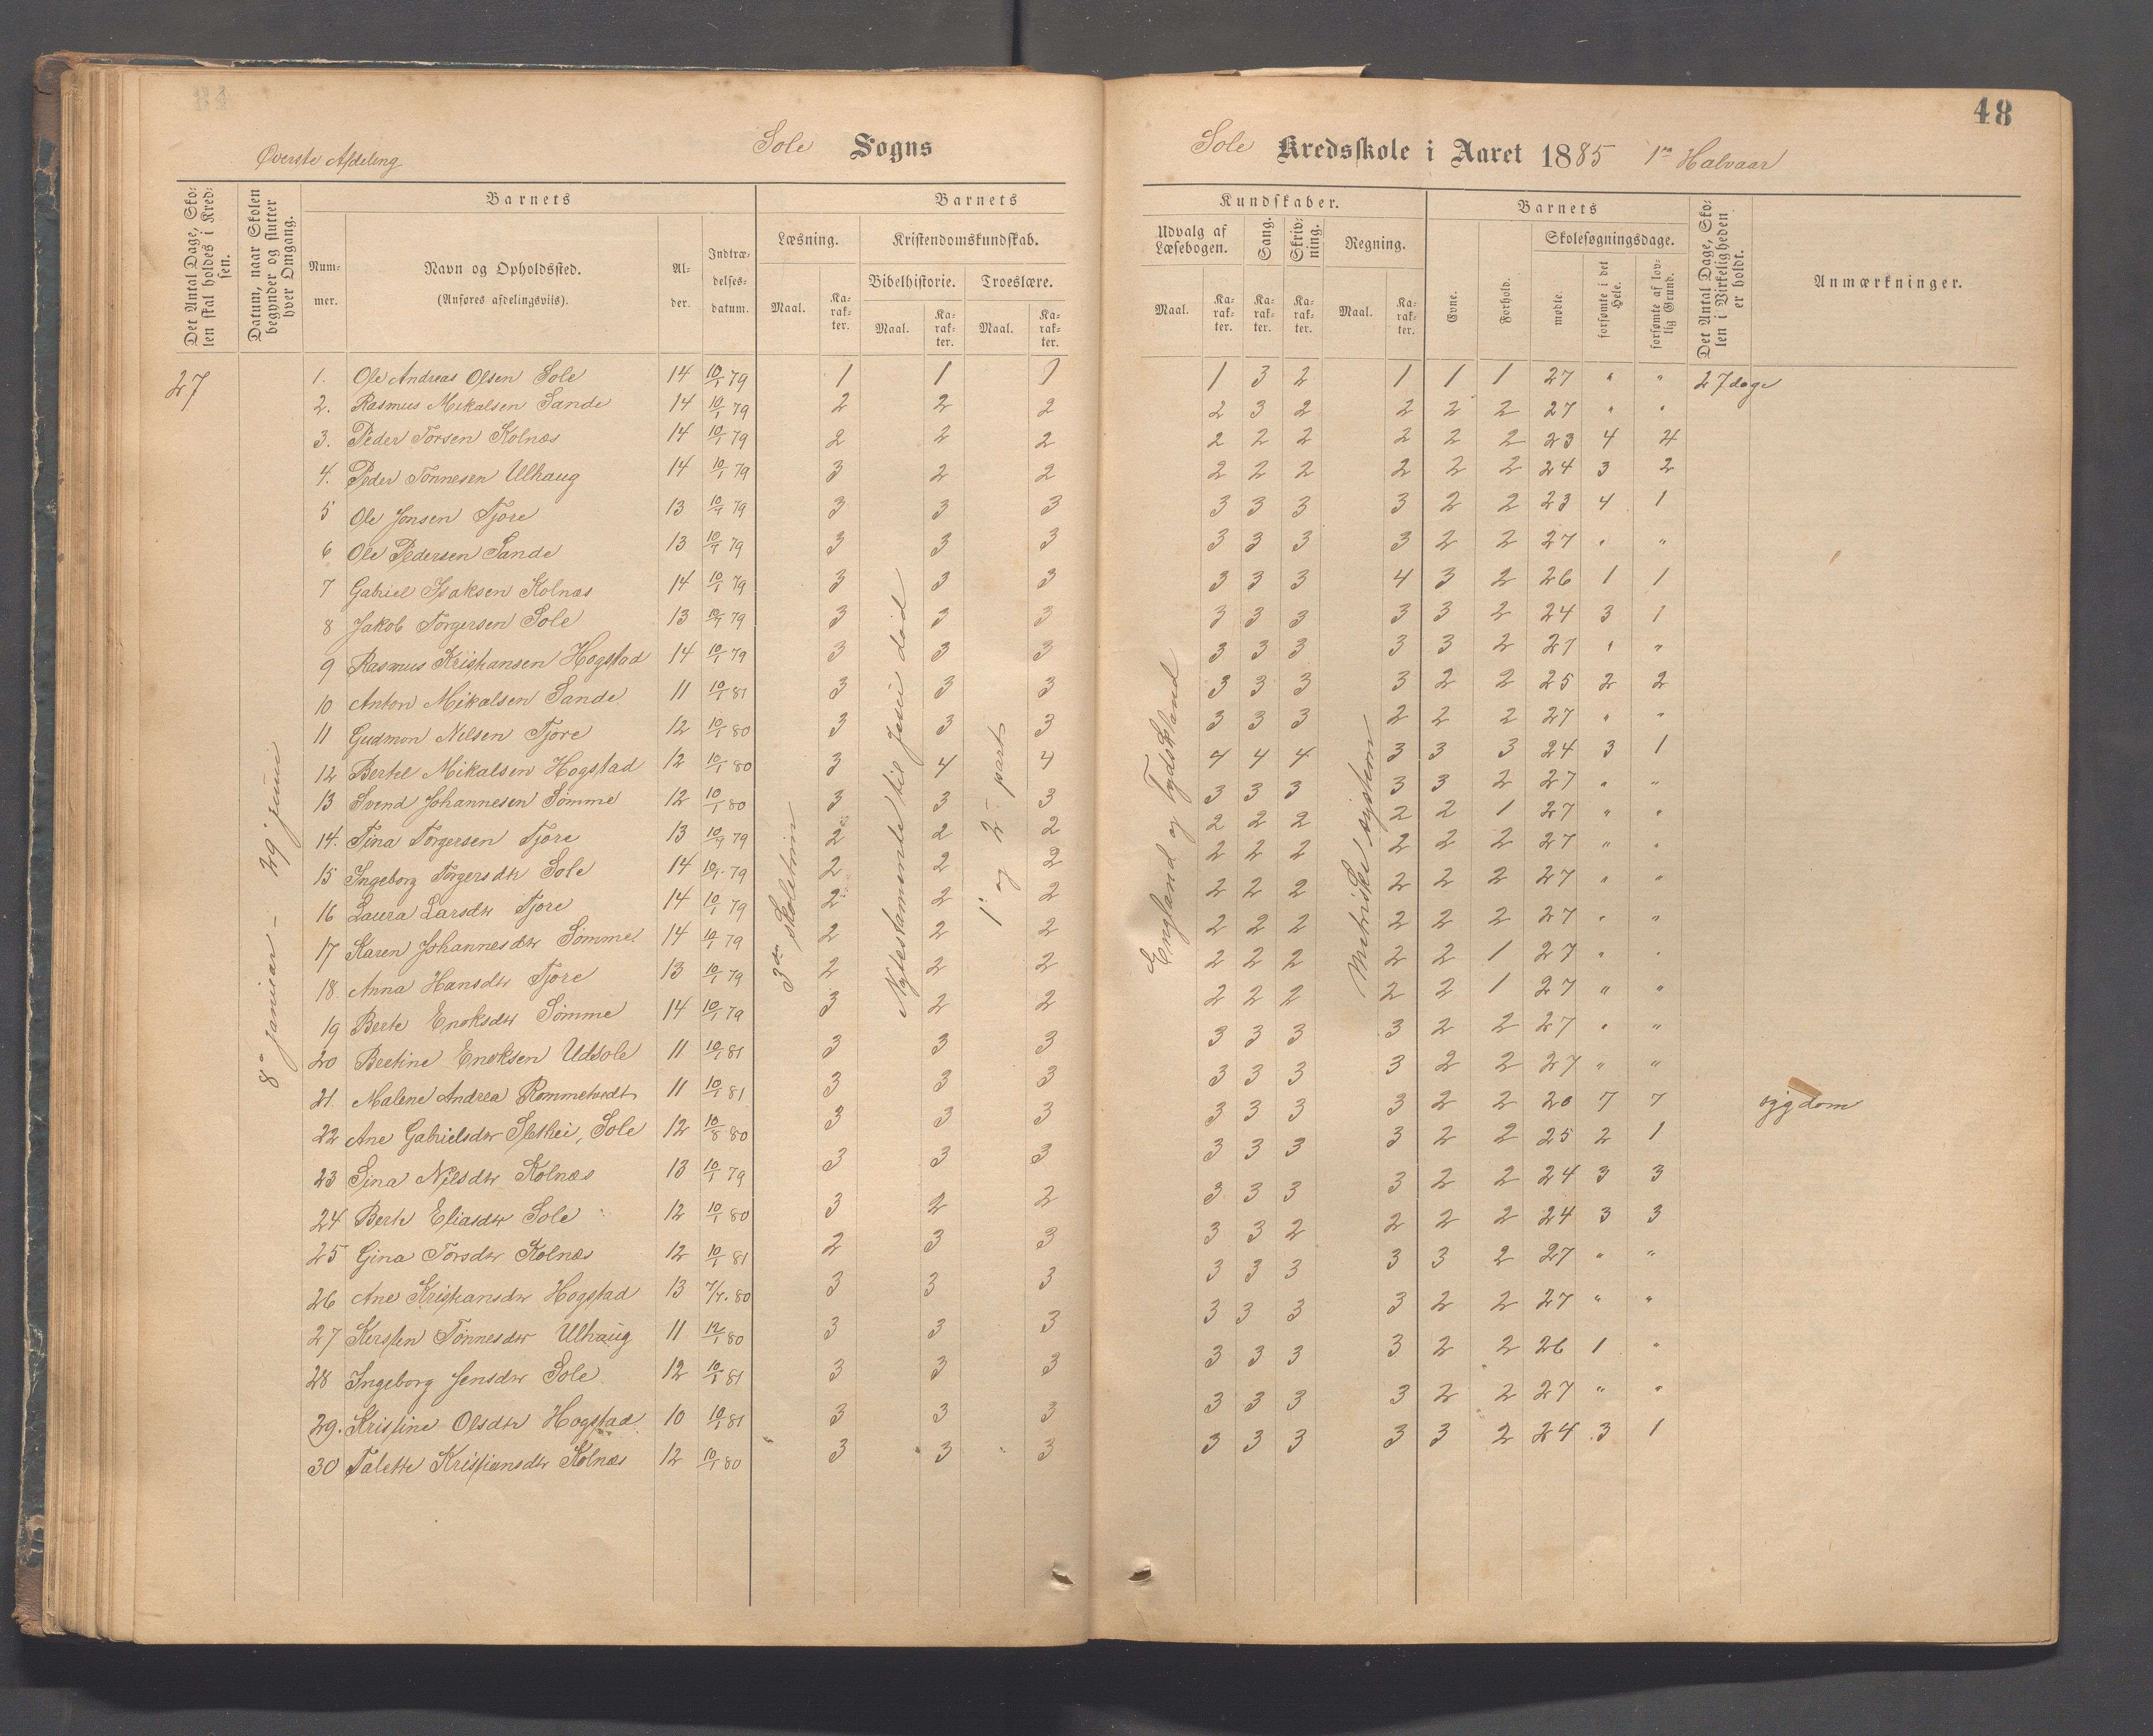 48
Øverste Afdeling
Sole Sogns
Sole Kredsskole i Aaret 1885 1ste Halvaar
Det Antal Dage, Skolen skal holdes i Kredsen.
Datum, naar Skolen begynder og slutter hver Omgang.
Barnets
Nummer.
Navn og Opholdssted.
(Anføres afdelingsviis).
Alder.
Indtrædelsesdatum.
Barnets
Læsning.
Maal.
Karakter.
Kristendomskundskab.
Bibelhistorie.
Maal.
Karakter.
Troeslære.
Maal.
Karakter.
Kundskaber.
Udvalg af Læsebogen.
Maal.
Karakter.
Sang.
Karakter.
Skrivning.
Karakter.
Regning.
Maal.
Karakter.
Barnets
Evne.
Forhold.
Skolesøgningsdage.
mødte.
forsømte i det Hele.
forsømte af lovlig Grund.
Det Antal Dage, Skolen i Virkeligheden er holdt.
Anmærkninger.
27
8de januar – 29 juni
3die skoletrin
Nytestamente til Jesu død
1' og 2- part
England og Tydskland
Metriske system
1. Ole Andreas Olsen Sole 14 10/1 79 1 1 1 1 3 2 1 1 1 27 " " 27 dage
2. Rasmus Mikalsen Sande 14 10/1 79 2 2 2 2 3 2 2 2 2 27 " "
3. Peder Torsen Kolnæs 14 10/1 79 2 2 2 2 2 2 2 2 2 23 4 4
4. Peder Tønnesen Ulhaug 14 10/1 79 3 2 2 2 2 2 2 2 2 24 3 2
5 Ole Jonsen Tjore 13 10/9 79 3 3 3 3 3 3 3 2 2 23 4 1
6 Ole Pedersen Sande 13 10/9 79 3 3 3 3 3 3 3 2 2 27 " "
7 Gabriel Isaksen Kolnæs 14 10/1 79 3 3 3 3 3 3 4 3 2 26 1 1
8 Jakob Torgersen Sole 13 10/9 79 3 3 3 3 3 3 3 3 2 24 3 1
9 Rasmus Kristiansen Hogstad 14 10/1 79 3 3 3 3 3 3 3 3 2 27 " "
10 Anton Mikalsen Sande 11 10/1 81 3 3 3 3 3 3 3 2 2 25 2 2
11 Gudmon Nilsen Tjore 12 10/1 80 3 3 3 3 3 3 2 2 2 27 " "
12 Bertel Mikalsen Hogstad 12 10/1 80 3 4 4 4 4 4 3 3 3 24 3 1
13 Svend Johannesen Sømme 12 10/1 80 3 3 3 3 3 3 3 3 2 27 " "
14. Tina Torgersen Tjore 13 10/9 79 2 2 2 2 2 2 2 2 1 27 " "
15 Ingeborg Torgersdtr Sole 14 10/1 79 2 2 2 2 2 2 2 2 2 27 " "
16 Laura Larsdtr Tjore 14 10/1 79 2 2 2 2 2 2 2 2 2 27 " "
17 Karen Johannesdtr Sømme 14 10/1 79 2 2 2 2 2 2 2 2 2 27 " "
18. Anna Hansdtr Tjore 13 10/1 79 2 2 2 2 2 2 2 2 1 27 " "
19 Berte Enoksdtr Sømme 14 10/1 79 3 2 2 2 2 2 2 2 1 27 " "
20 Bertine Enoksen Udsole 11 10/1 81 3 3 3 3 3 3 3 2 2 27 " "
21. Malene Andrea Rommetvedt 11 10/1 81 3 3 3 3 3 3 3 2 2 27 " "
22 Ane Gabrielsdtr Slethei, Sole 12 10/8 80 3 3 3 3 3 3 3 2 2 20 7 7 sygdom
23 Sina Nilsdtr Kolnæs 13 10/1 79 3 3 3 3 3 3 3 2 2 25 2 1
24 Berte Eliasdtr Sole 12 10/1 80 3 2 2 3 3 3 3 2 2 24 3 3
25 Gina Torsdtr Kolnæs 12 10/1 81 2 3 3 3 3 2 2 2 2 24 3 3
26 Ane Kristiansdtr Hogstad 13 7/7. 80 3 3 3 3 3 3 3 3 2 27 " "
27 Kersten Tønnesdtr Ulhaug 11 12/1 80 3 3 3 3 3 3 3 2 2 27 " "
28 Ingeborg Jensdtr Sole 12 10/1 81 3 3 3 3 3 3 3 2 2 26 1 "
29. Kristine Olsdtr Hogstad 10 10/1 81 3 3 3 3 3 3 3 2 2 27 " "
30 Talette Kristiansdtr Kolnæs 12 10/1 80 3 3 3 3 3 3 3 3 2 24 3 1